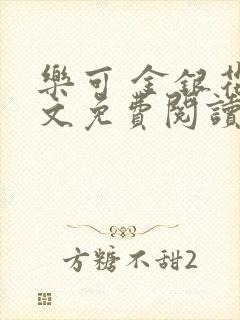 樂可 金銀花
文免費閱讀
方糖不甜2